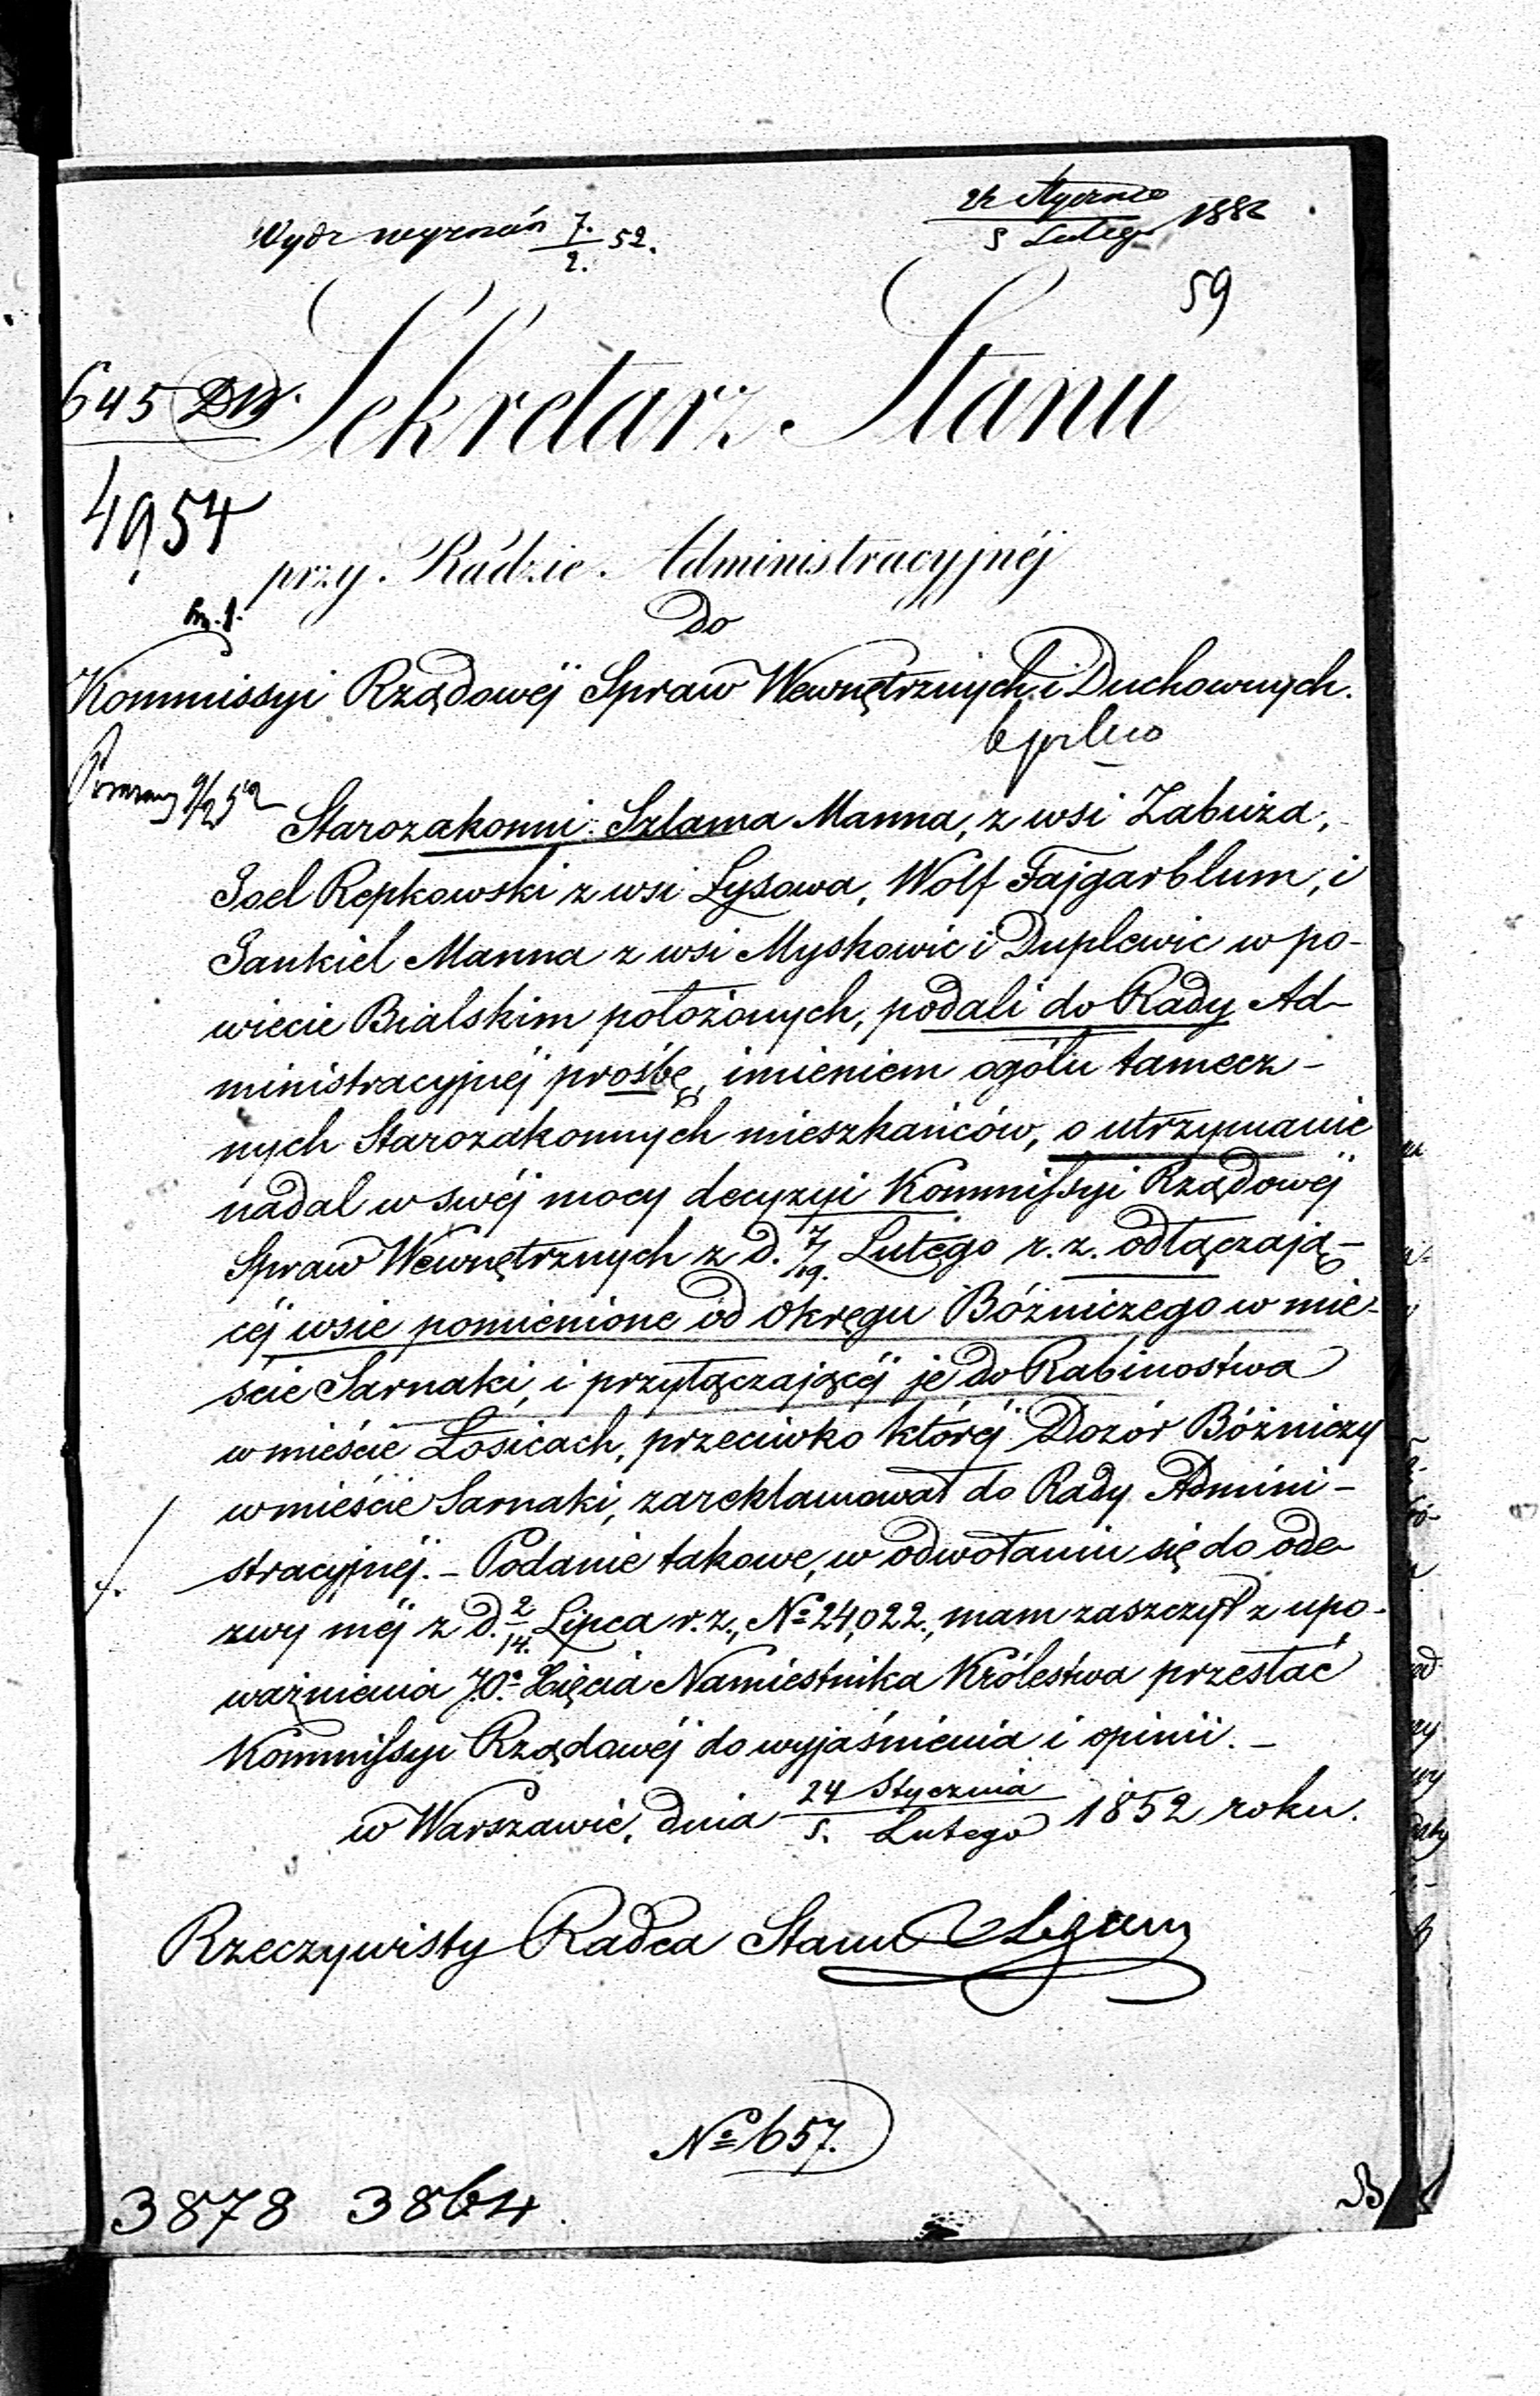 Wydz wyznań 7./2. 52.
24 Stycznia/5 Lutego 1852
59
Sekretarz Stanu
645 DW.
4954
przy Radzie Administracyjnéj
Do
Kommissyi Rządowéj Spraw Wewnętrznych i Duchownych.
9/2 52
Starozakonni: Szlama Manna, z wsi Zabuża,
Joel Repkowski z wsi Łysowa, Wolf Fajgarblum, i
Jankiel Manna z wsi Myskowic i Duplewic w po-
wiecie Bialskim położonych, podali do Rady Ad-
ministracyjnéj prośbę, imieniem ogółu tamecz-
nych Starozakonnych mieszkańców, o utrzymanie
nadal w swéj mocy decyzyi Kommissyi Rządowéj
Spraw Wewnętrznych z d. 7/19. Lutego r. z. odłączają-
céj wsie pomienione od okręgu Bóżniczego w mie-
ście Sarnaki, i przyłączającéj je do Rabinostwa
w mieście Łosicach, przeciwko któréj Dozór Bóżniczy
w mieście Sarnaki, zareklamował do Rady Admini-
stracyjnéj. - Podanie takowe, w odwołaniu się do ode-
zwy méj z d. 2/14. Lipca r. z., № 24,022., mam zaszczyt z upo-
ważnienia J.O. Xięcia Namiestnika Królestwa przesłać
Kommissyi Rządowéj do wyjaśnienia i opinii. -
w Warszawie, dnia 24 Stycznia/5. Lutego 1852 roku.
Rzeczywisty Radca Stanu
№ 657.
3878 3864.